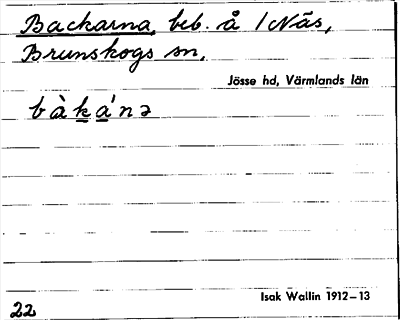 Backarna, beb. å /Näs,
Brunskogs sn,
Jösse hd, Värmlands län
bàka̱´nə
Isak Wallin 1912–13
22